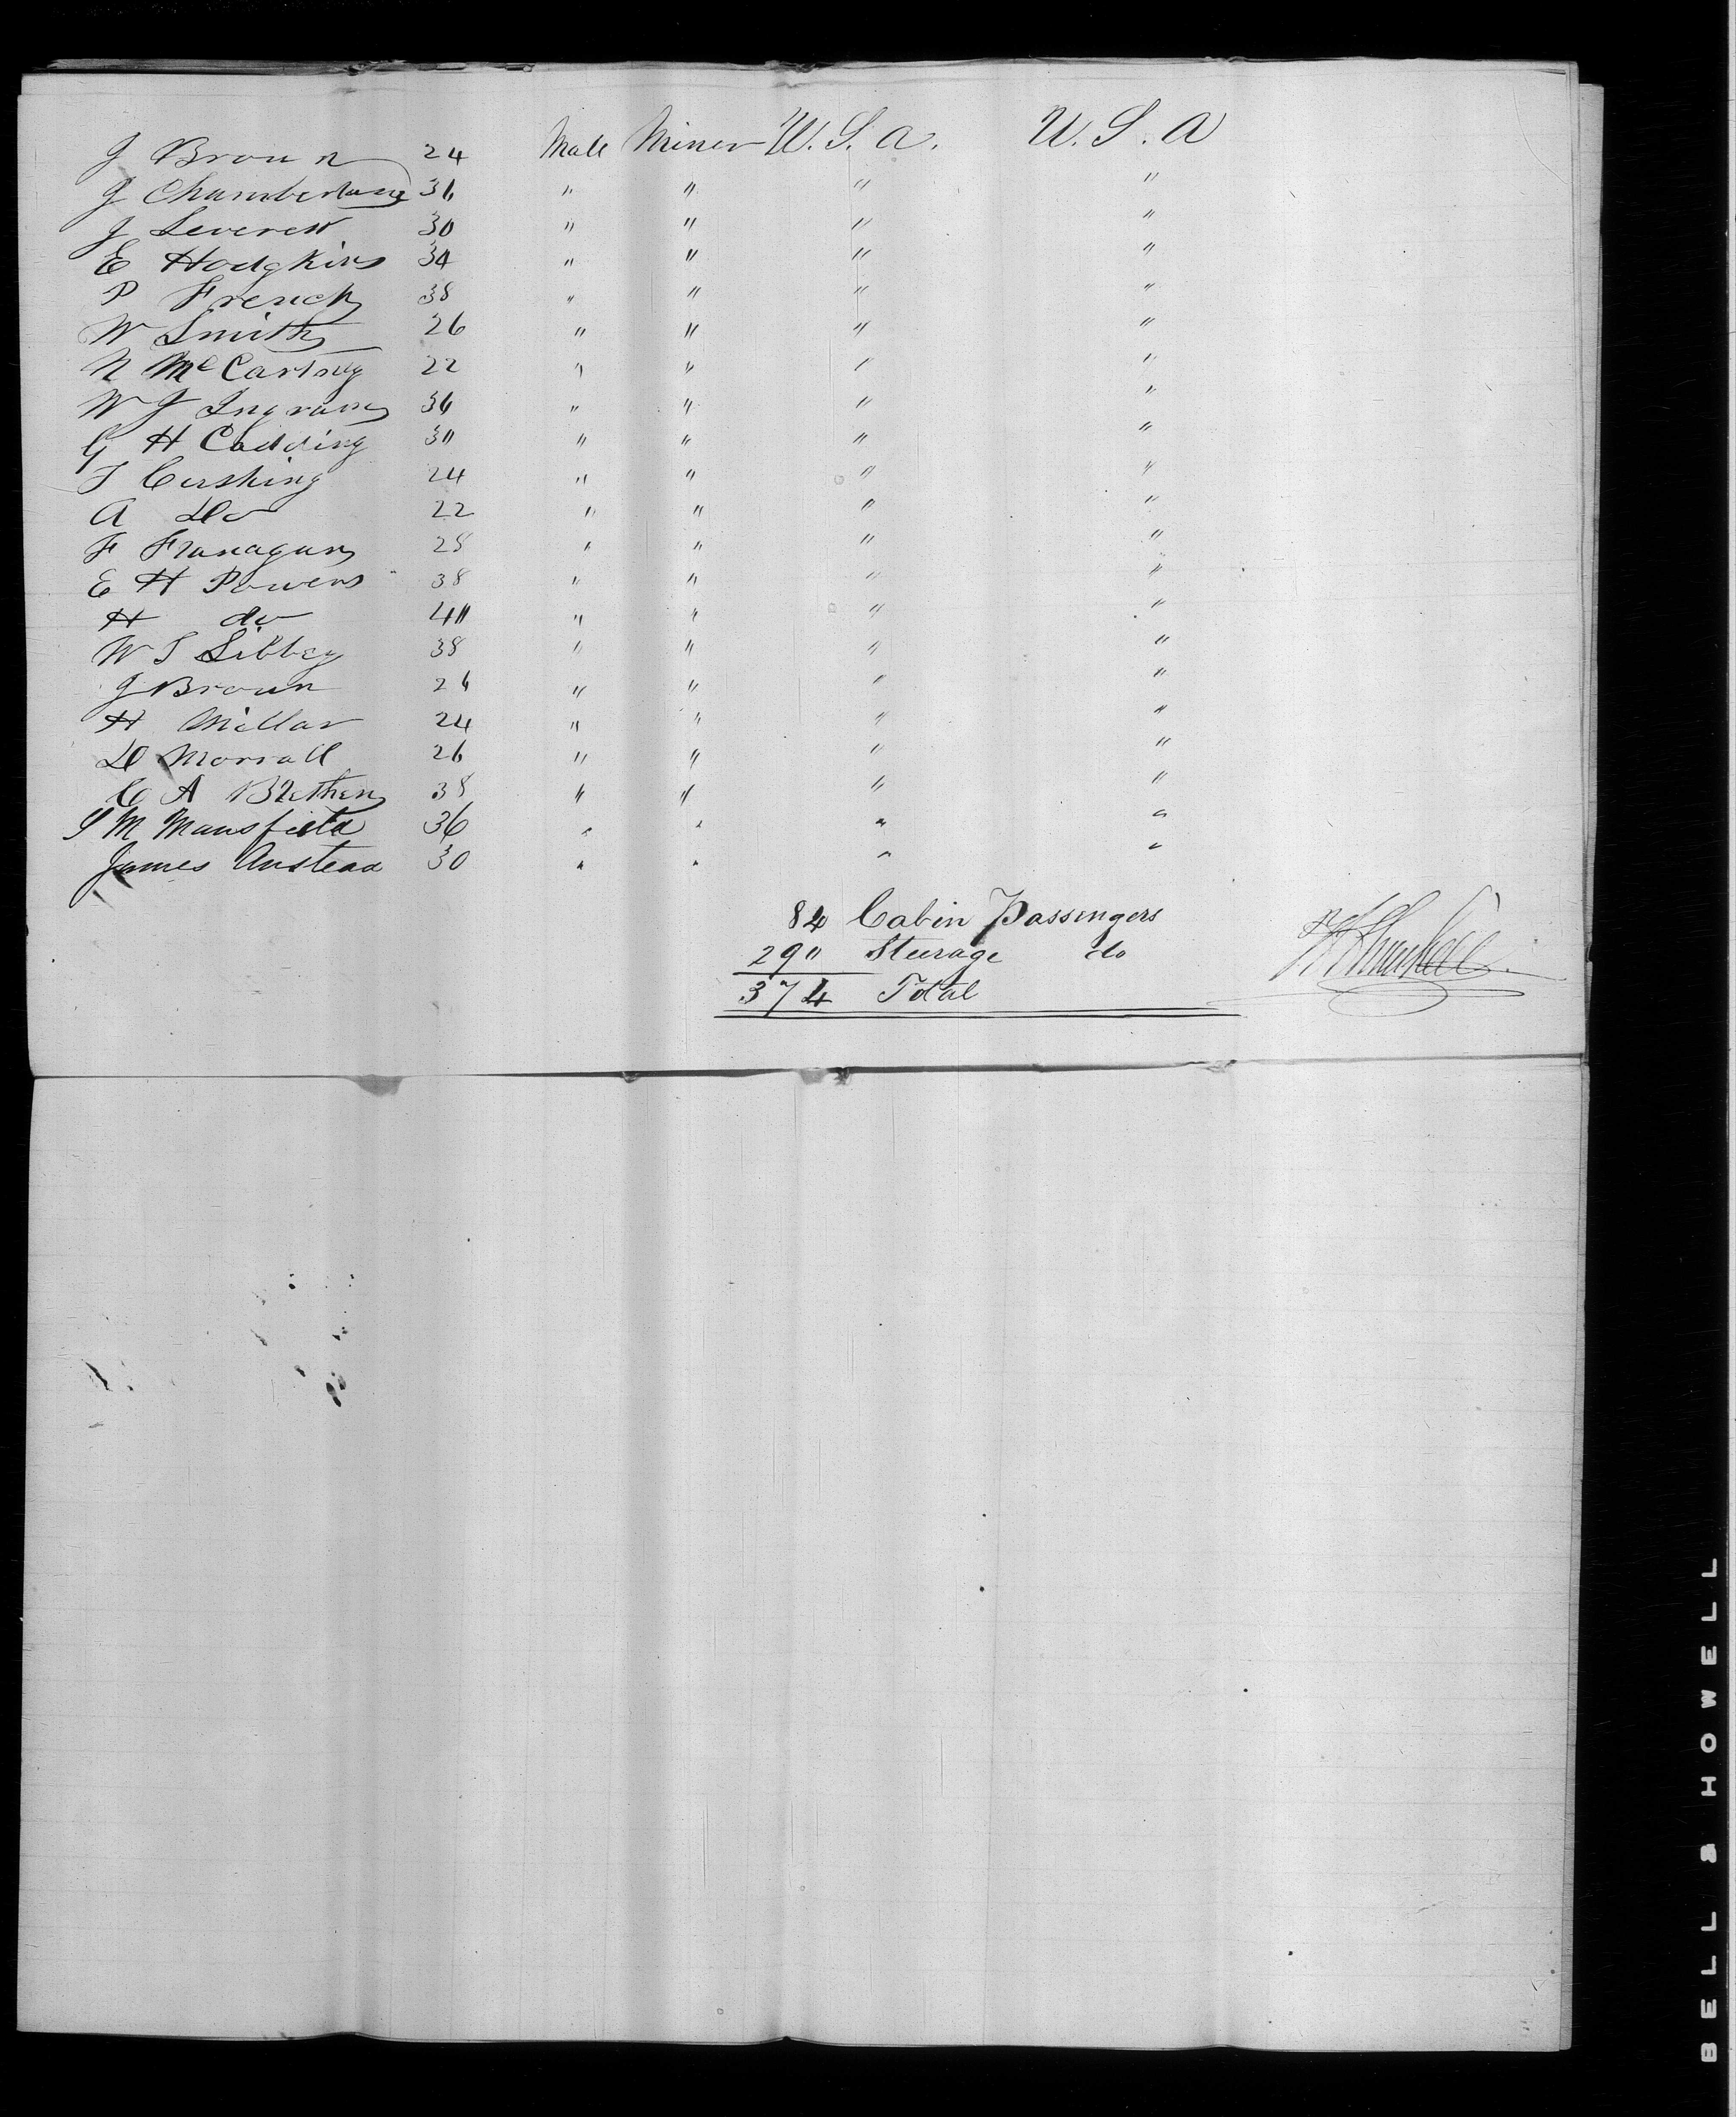 J Brown 24 Male Miner U. S. A. U. S. A
J Chamberlain 36 " " " "
J Leverett 30 " " " "
E Hodgkins 34 " " " "
P French 38 " " " "
W Smith 26 " " " "
N McCartney 22 " " " "
W J Ingram 36 " " " "
G H Codding 30 " " " "
T Cushing 24 " " " "
A Do 22 " " " "
F Flanagan 28 " " " "
E H Powers 38 " " " "
H do 40 " " " "
W S Libbey 38 " " " "
J Brown 26 " " " "
H Millar 24 " " " "
D Morrall 26 " " " "
C A Brethen 38 " " " "
S M Mansfield 36 " " " "
James Anstead 30 " " " "
84 Cabin Passengers
290 Steerage do
374 Total
BELL & HOWELL